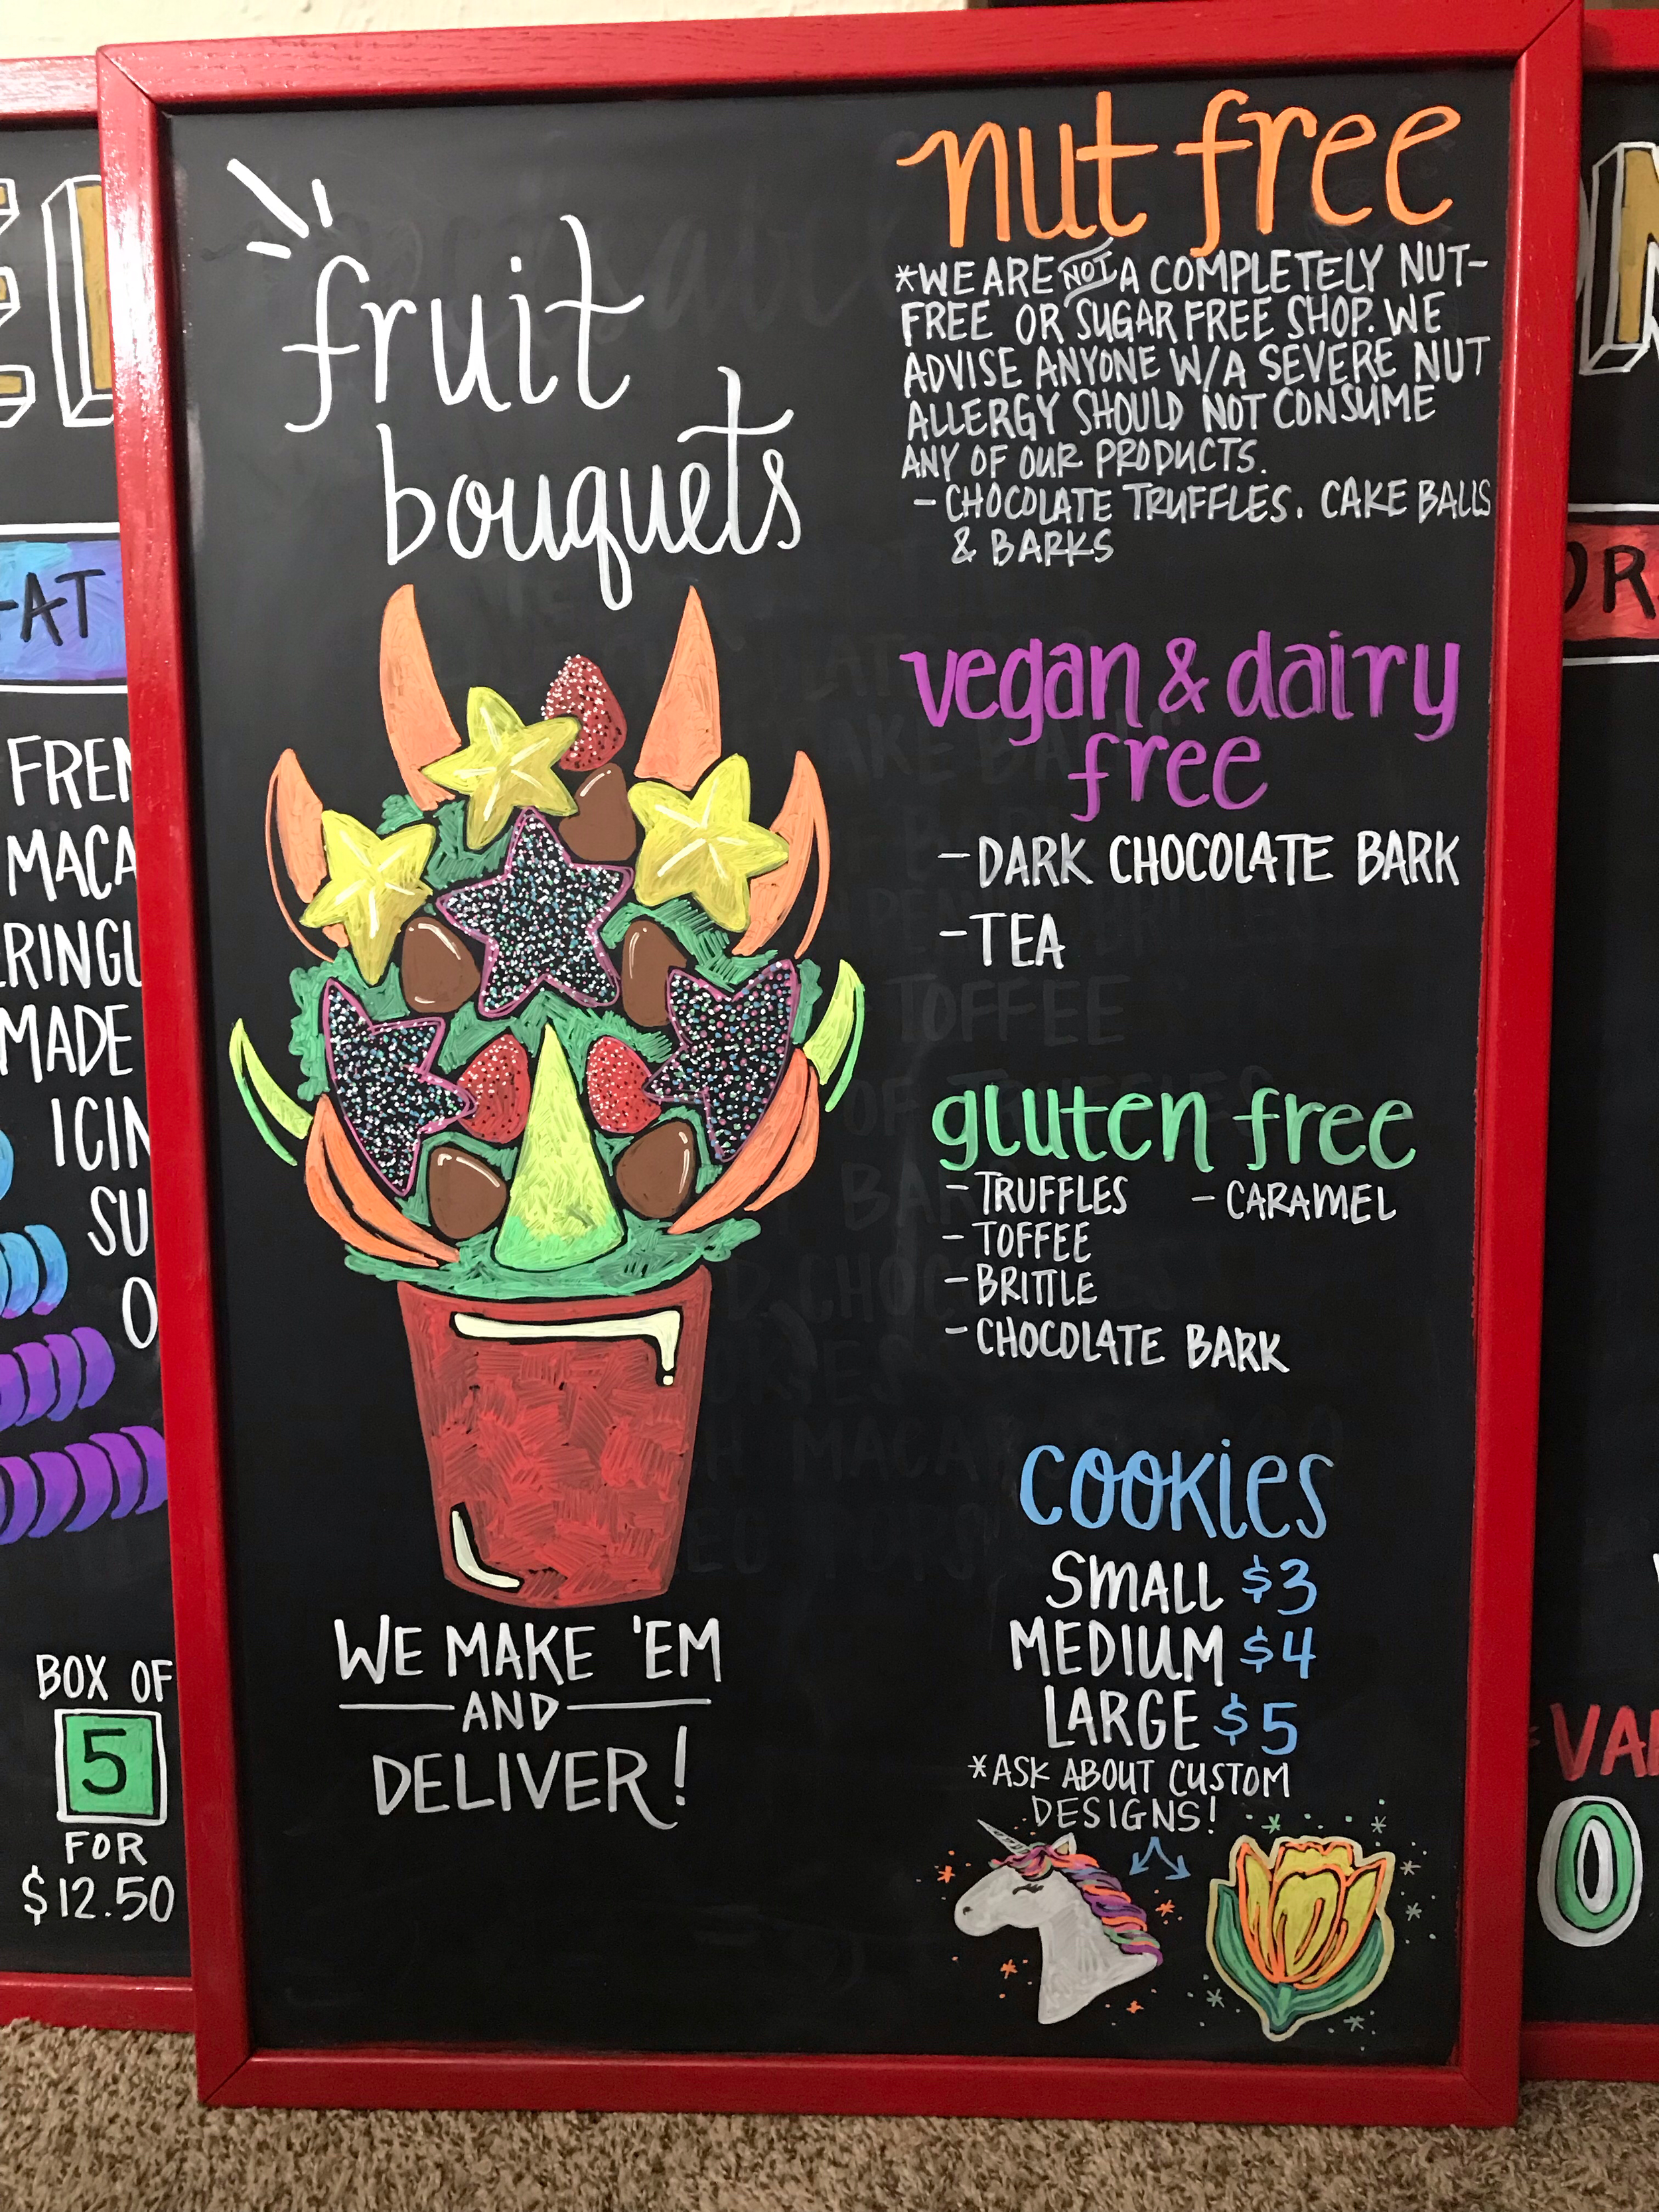 fruit
bouquets
WE MAKE 'EM
AND
DELIVER!
nut free
*WE ARE NOT A COMPLETELY NUT-
FREE OR SUGAR FREE SHOP. WE
ADVISE ANYONE W/A SEVERE NUT
ALLERGY SHOULD NOT CONSUME
ANY OF OUR PRODUCTS.
- CHOCOLATE TRUFFLES. CAKE BALLS
& BARKS
vegan & dairy
free
- DARK CHOCOLATE BARK
- TEA
gluten free
- TRUFFLES - CARAMEL
- TOFFEE
- BRITTLE
- CHOCOLATE BARK
cookies
SMALL $3
MEDIUM $4
LARGE $5
*ASK ABOUT CUSTOM
DESIGNS!
MADE
BOX OF
5
FOR
$12.50